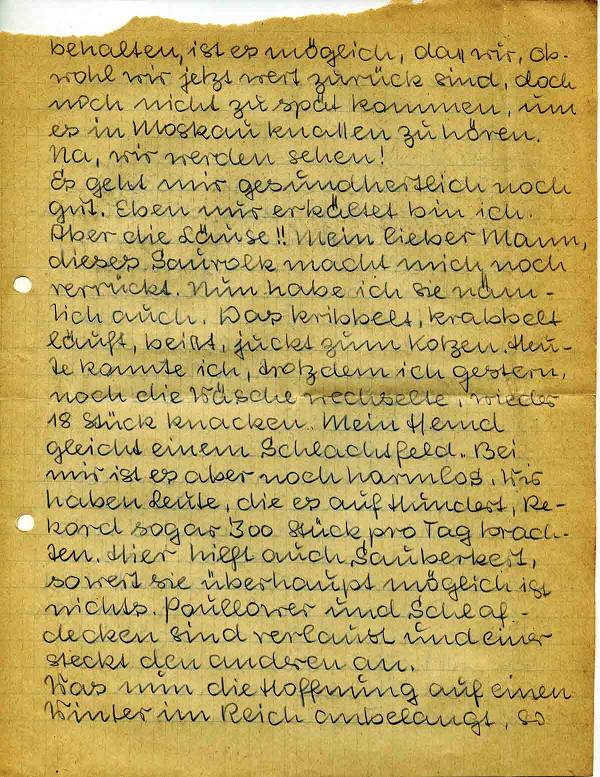 behalten, ist es möglich, daß wir, ob-
wohl wir jetzt weit zurück sind, doch
noch nicht zu spät kommen, um
es in Moskau knallen zu hören.
Na, wir werden sehen!
Es geht mir gesundheitlich noch
gut. Eben nur erkältet bin ich.
Aber die Läuse!! Mein lieber Mann,
dieses Sauvolk macht mich noch
verrückt. Nun habe ich sie näm-
lich auch. Das kribbelt, krabbelt
läuft, beißt, juckt zum Kotzen. Heu-
te konnte ich, trotzdem ich gestern,
noch die Wäsche wechselte, wieder
18 Stück knacken. Mein Hemd
gleicht einem Schlachtfeld. Bei
mir ist es aber noch harmlos. Wir
haben Leute, die es auf Hundert, Re-
kord sogar 300 Stück pro Tag brach-
ten. Hier hilft auch Sauberkeit,
soweit sie überhaupt möglich ist
nichts. Poullower und Schlaf-
decken sind verlaust und einer
steckt den anderen an.
Was nun die Hoffnung auf einen
Winter im Reich anbelangt, so